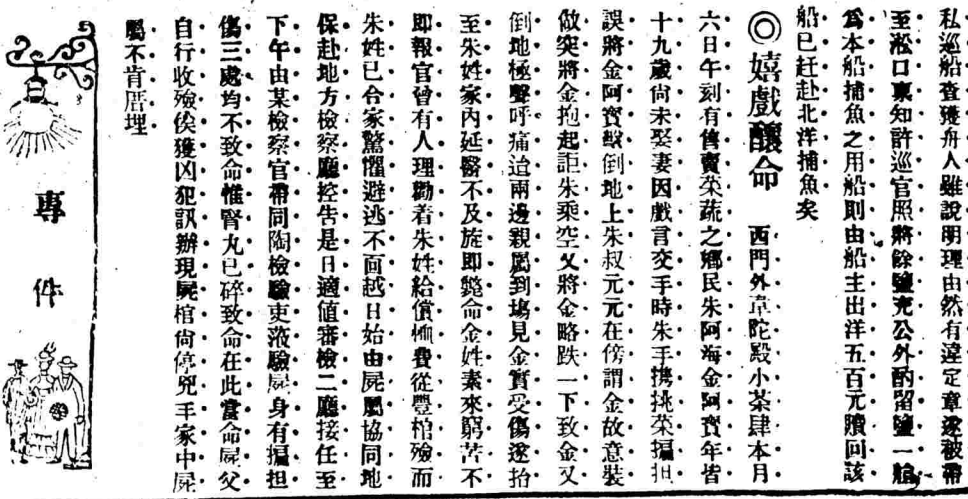 私巡船查獲舟人雖說明理由然有違定章遂被帶
至淞口稟知許巡官照將餘鹽充公外酌留鹽一艙
爲本船捕魚之用船則由船主出洋五百元贖回該
船已赶赴北洋捕魚矣
◎嬉戲釀命 西門外韋陀殿小茶肆本月
六日午刻有售賣菜蔬之鄉民朱阿海金阿寶年皆
十九歲尙未娶妻因戲言交手時朱手携挑菜擔担
誤將金阿寶擊倒地上朱叔元元在傍謂金故意裝
做突將金抱起詎朱乘空又將金略跌一下致金又
倒地極聲呼痛迨兩邊親屬到塲見金實受傷遂抬
至朱姓家內延醫不及旋即斃命金姓素來窮苦不
即報官曾有人理勸着朱姓給償恤費從豐棺殮而
朱姓已合家驚懼避逃不面越日始由屍屬協同地
保赴地方檢察廳控告是日適値審檢二廳接任至
下午由某檢察官帶同陶檢驗吏蒞驗屍身有擔担
傷三處均不致命惟腎丸已碎致命在此當命屍父
自行收殮俟獲凶犯訊辦現屍棺尙停兇手家中屍
屬不肯厝埋
專件